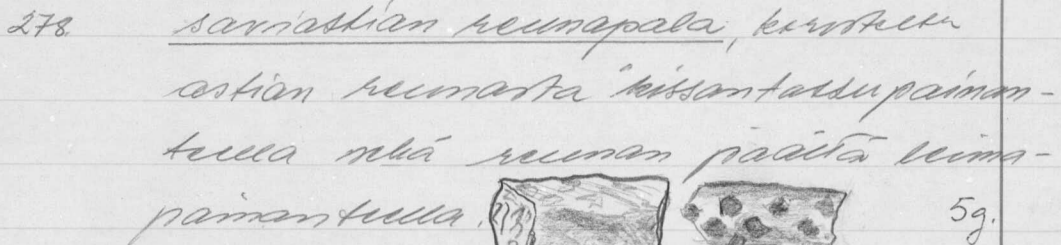 278. saviastian reunapala, koristeltu
astian reunasta "kissantassupainan-
teella sekä reunan päältä leima-
painanteella. 5g.